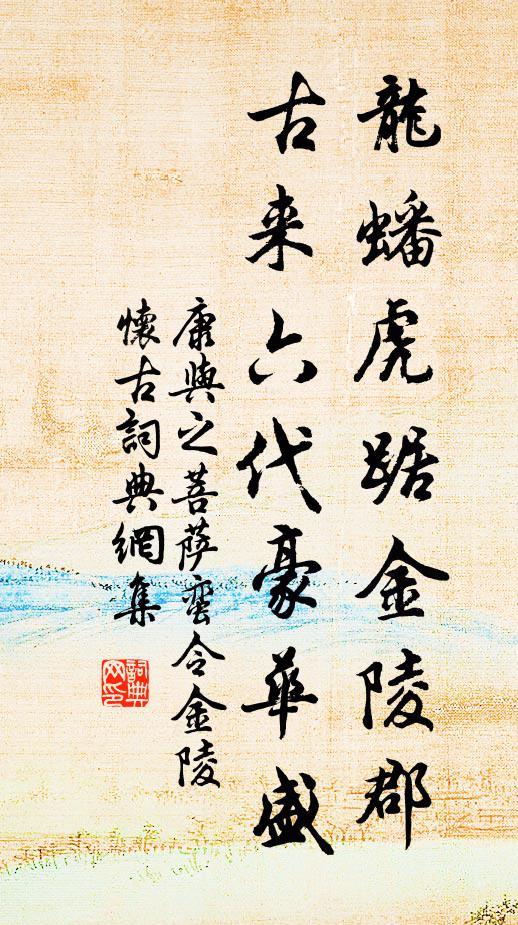 龍蟠虎踞金陵郡
古来六代豪華盛
康與之菩薩蠻令金陵
懷古詞典網集
詞典
网印